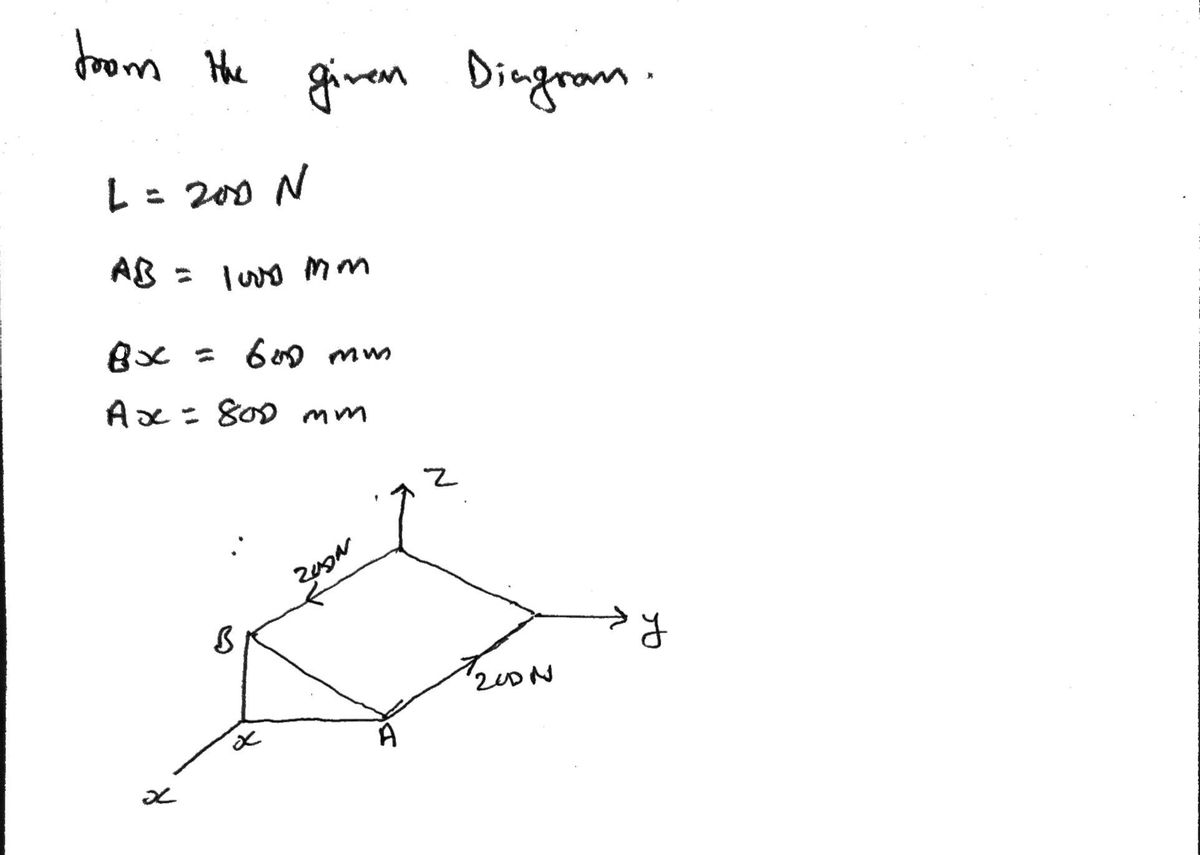 from the given Diagram.
L = 200 N
AB = 1000 mm
Bx = 600 mm
Ax = 800 mm
z
∴
200N
B
y
200N
x
A
x